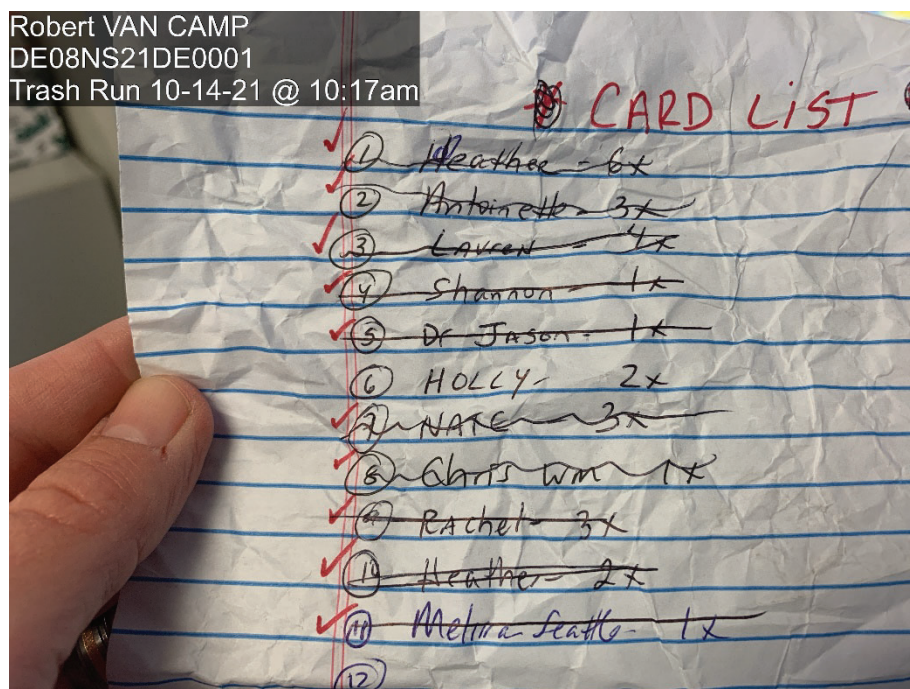 Robert VAN CAMP
DE08NS21DE0001
Trash Run 10-14-21 @ 10:17am
CARD LIST
1 Heather - 6x
2 Antoinette - 3x
3 Lauren - 4x
4 Shannon - 1x
5 Dr JASON - 1x
6 HOLLY - 2x
7 NATE 3x
8 Chris Wm 1x
9 RAchel - 3x
10 Heather - 2x
11 Melissa Seattle - 1x
12